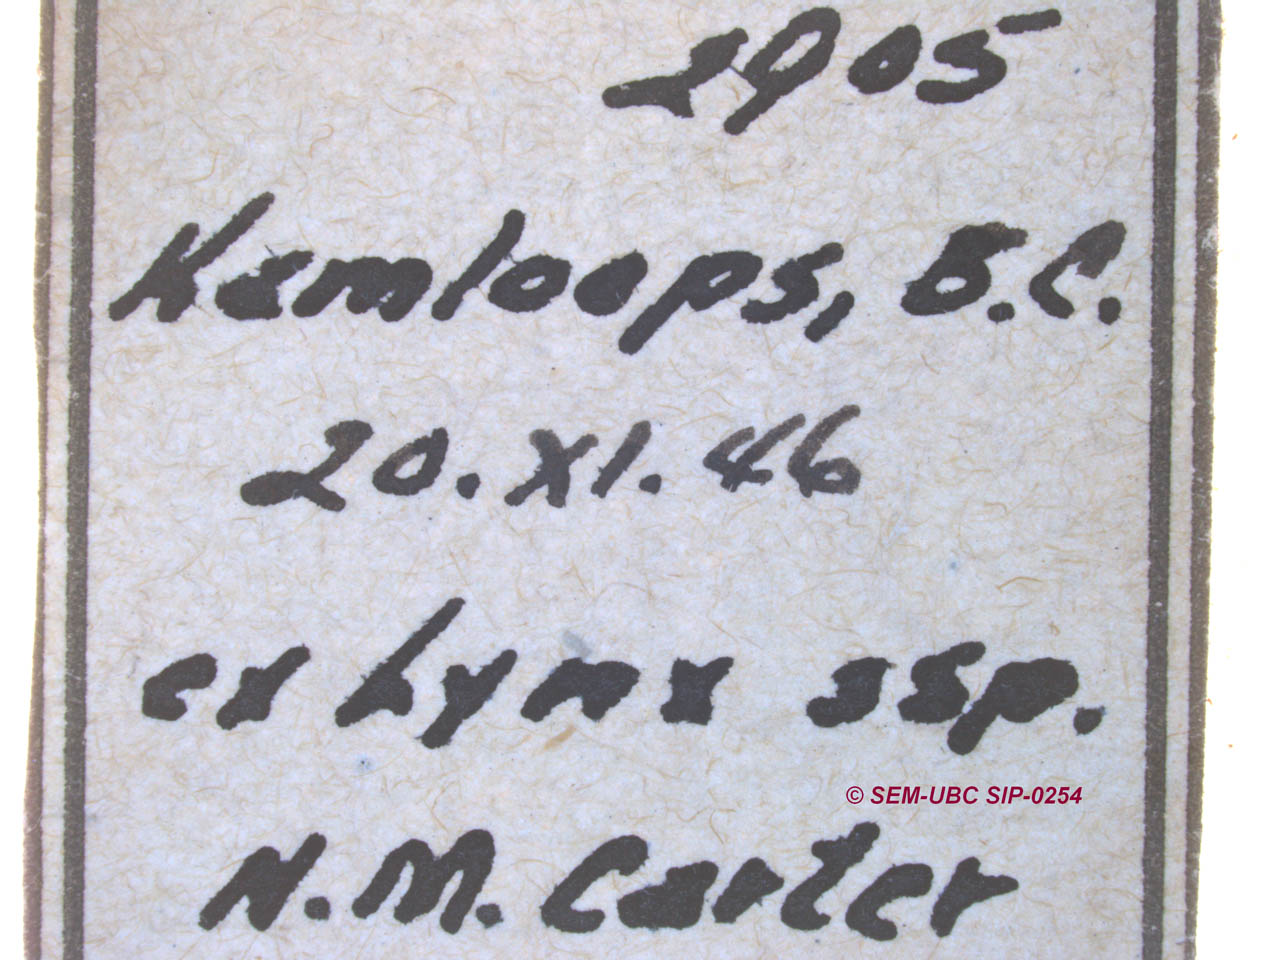 2905
Kamloops, B.C.
20.XI.46
ex Lynx ssp.
© SEM-UBC SIP-0254
N.M. Carter